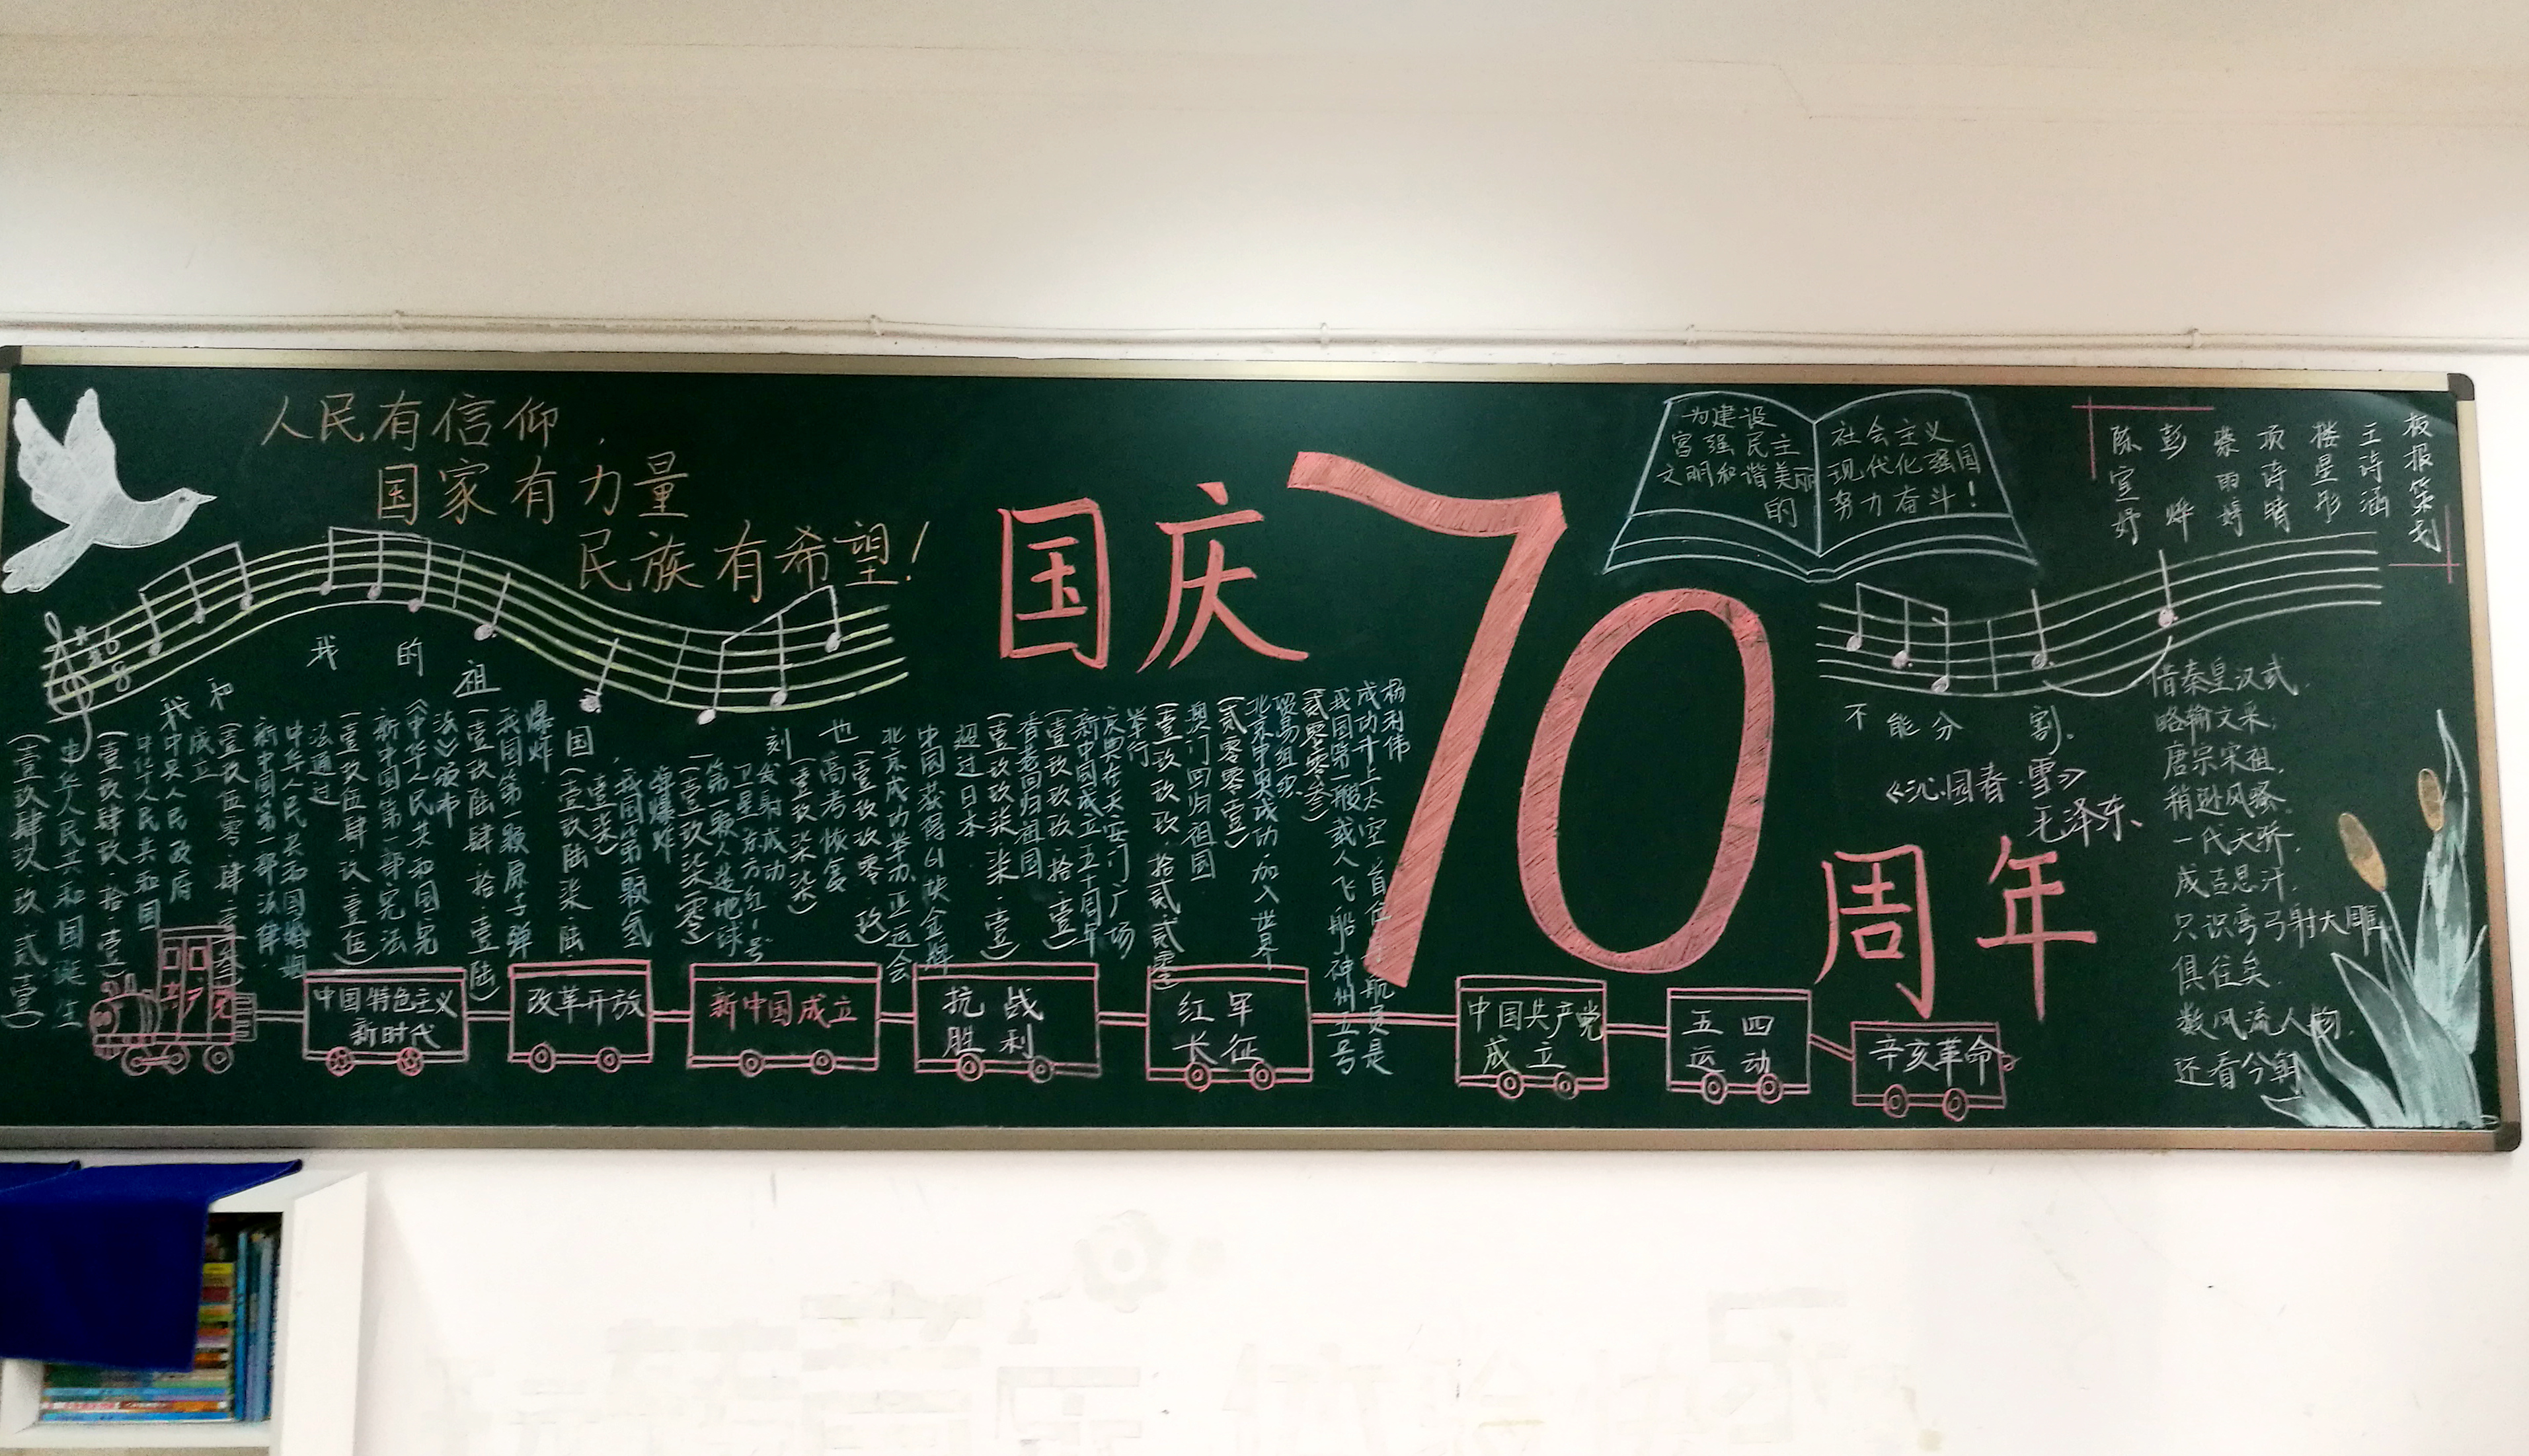 人民有信仰,
国家有力量
民族有希望!
国庆70周年
为建设
富强民主
文明和谐美丽
的
社会主义
现代化强国
努力奋斗!
板报策划
王诗涵
楼星彤
项诗晴
蔡雨婷
彭烨
陈宣妤
我和我的祖国
一刻也不能分割。
《沁园春·雪》
毛泽东、
借秦皇汉武,
略输文采;
唐宗宋祖,
稍逊风骚。
一代天骄,
成吉思汗,
只识弯弓射大雕
俱往矣,
数风流人物,
还看今朝
(壹玖肆玖 玖 贰壹)
中华人民共和国诞生
(壹玖肆玖 拾 壹)
中华人民共和国
中央人民政府
成立
(壹玖伍零 肆
新中国第一部法律
中华人民共和国婚姻
法通过
(壹玖伍肆 玖 壹伍)
新中国第一部宪法
《中华人民共和国宪
法》颁布
(壹玖陆肆 拾 壹陆)
我国第一颗原子弹
爆炸
(壹玖陆柒 陆
壹柒)
我国第一颗氢
弹爆炸
(壹玖柒零)
第一颗人造地球
卫星东方红1号
发射成功
(壹玖柒柒)
高考恢复
(壹玖玖零 玖)
北京成功举办亚运会
中国获得61块金牌
超过日本
(壹玖玖柒 柒 壹)
香港回归祖国
(壹玖玖玖 拾 壹)
新中国成立五十周年
庆典在天安门广场
举行
(壹玖玖玖 拾贰 贰零)
澳门回归祖国
(贰零零壹)
北京申奥成功 加入世界
贸易组织
(贰零零叁)
我国第一艘载人飞船神州五号
成功升上太空 首位航员是
杨利伟
中国特色主义
新时代
改革开放
新中国成立
抗战
胜利
红军
长征
中国共产党
成立
五四
运动
辛亥革命